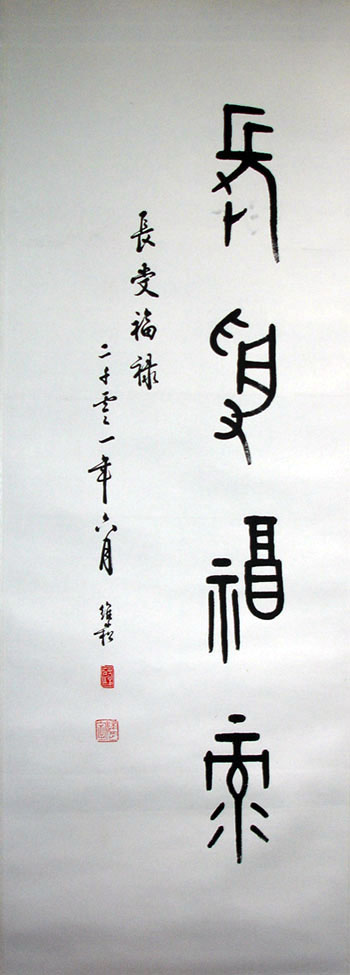 長受福禄
長受福禄
二千零一年六月 維松